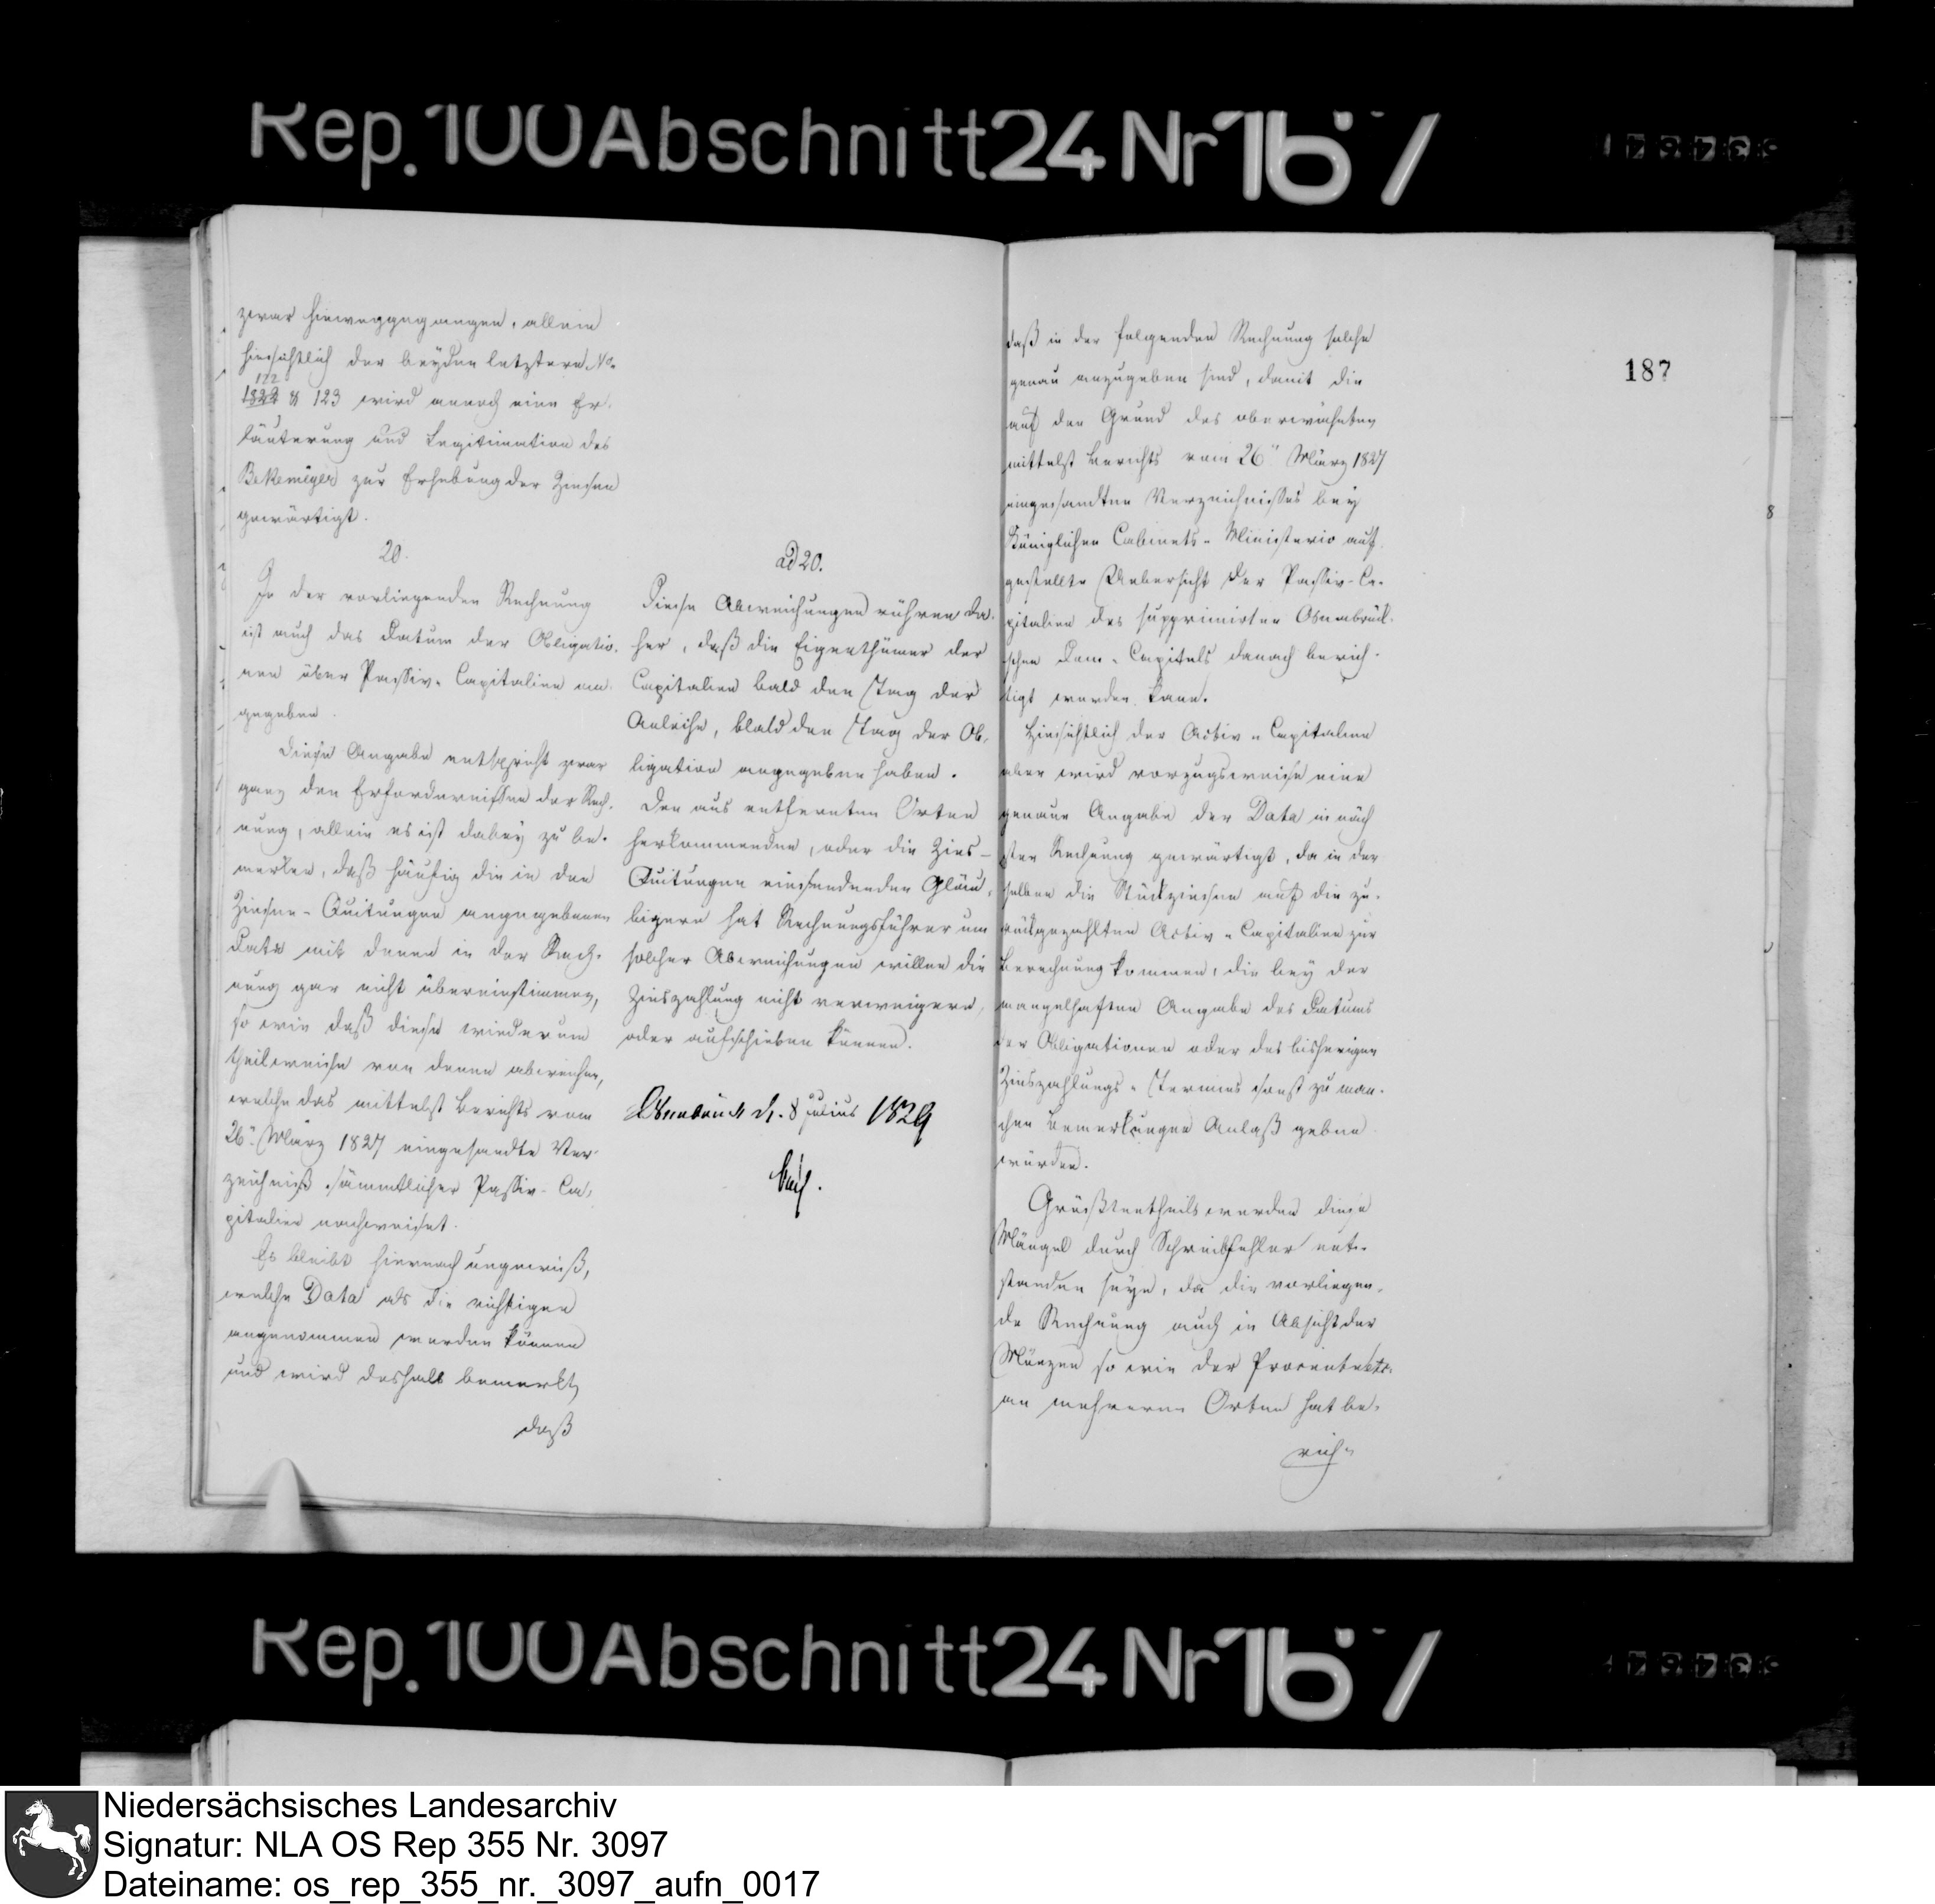 Rep. 100 Abschnitt 24 Nr 167
zwar hinweggegangen, allein
hinsichtlich der beyden letztern No.
122
1822 & 123 wird annoch eine Er-
läuterung und Legitimation des
Bekemeyer zur Erhebung der Zinsen
gewärtigt.
20.
In der vorliegenden Rechnung
ist auch das Datum der Obligatio-
nen über Passiv-Capitalien an-
gegeben.
Diese Angabe entspricht zwar
ganz den Erfordernissen der Rech-
nung, allein es ist dabey zu be-
merken, daß häufig die in den
Zinsen-Quitungen angegebenen
Data mit denen in der Rech-
nung gar nicht übereinstimmen,
so wie daß diese wiederum
theilweise von denen abweichen,
welche das mittelst Berichts vom
26ten März 1827 eingesandte Ver-
zeichniß sämmtlicher Passiv-Ca-
pitalien nachweiset.
Es bleibt hiernach ungewiß,
welche Data als die richtigen
angenommen werden können
und wird deshalb bemerkt,
daß
ad 20.
Diese Abweichungen rühren da-
her, daß die Eigenthümer der
Capitalien bald den Tag der
Anleihe, blald den Tag der Ob-
ligation angegeben haben.
Den aus entfernten Orten
herkommenden, oder die Zins-
Quitungen einsendenden Gläu-
bigern hat Rechnungsführer um
solcher Abweichungen willen die
Zinszahlung nicht verweigern,
oder aufschieben können.
Osnabrück d. 8 Julius 1829
187
daß in der folgenden Rechnung solche
genau anzugeben sind, damit die
auf den Grund des oberwähnten
mittelst Berichts vom 26ten März 1827
eingesandten Verzeichnisses bey
Königlichen Cabinets-Ministerio auf-
gestellte Uebersicht der Passiv-Ca-
pitalien des supprimirten Osnabrück-
schen Dom-Capitels danach berich-
tigt werden kann.
Hinsichtlich der Activ-Capitalien
aber wird vorzugsweise eine
genaue Angabe der Data in näch
ster Rechnung gewärtigt, da in der
selben die Stückzinsen auf die zu-
rückgezahlten Activ-Capitalien zur
Berechnung kommen, die bey der
mangelhaften Angabe des Datums
der Obligationen oder des bisherigen
Zinszahlungs-Termins sonst zu man-
chen Bemerkungen Anlaß geben
würden.
Größtentheils werden diese
Mängel durch Schreibfehler ent-
standen seyn, da die vorliegen-
de Rechnung auch in Absicht der
Münzen so wie der Procente etc.
an mehreren Orten hat be-
rich-
8
Rep. 100 Abschnitt 24 Nr 167
Niedersächsisches Landesarchiv
Signatur: NLA OS Rep 355 Nr. 3097
Dateiname: os_rep_355_nr._3097_aufn_0017